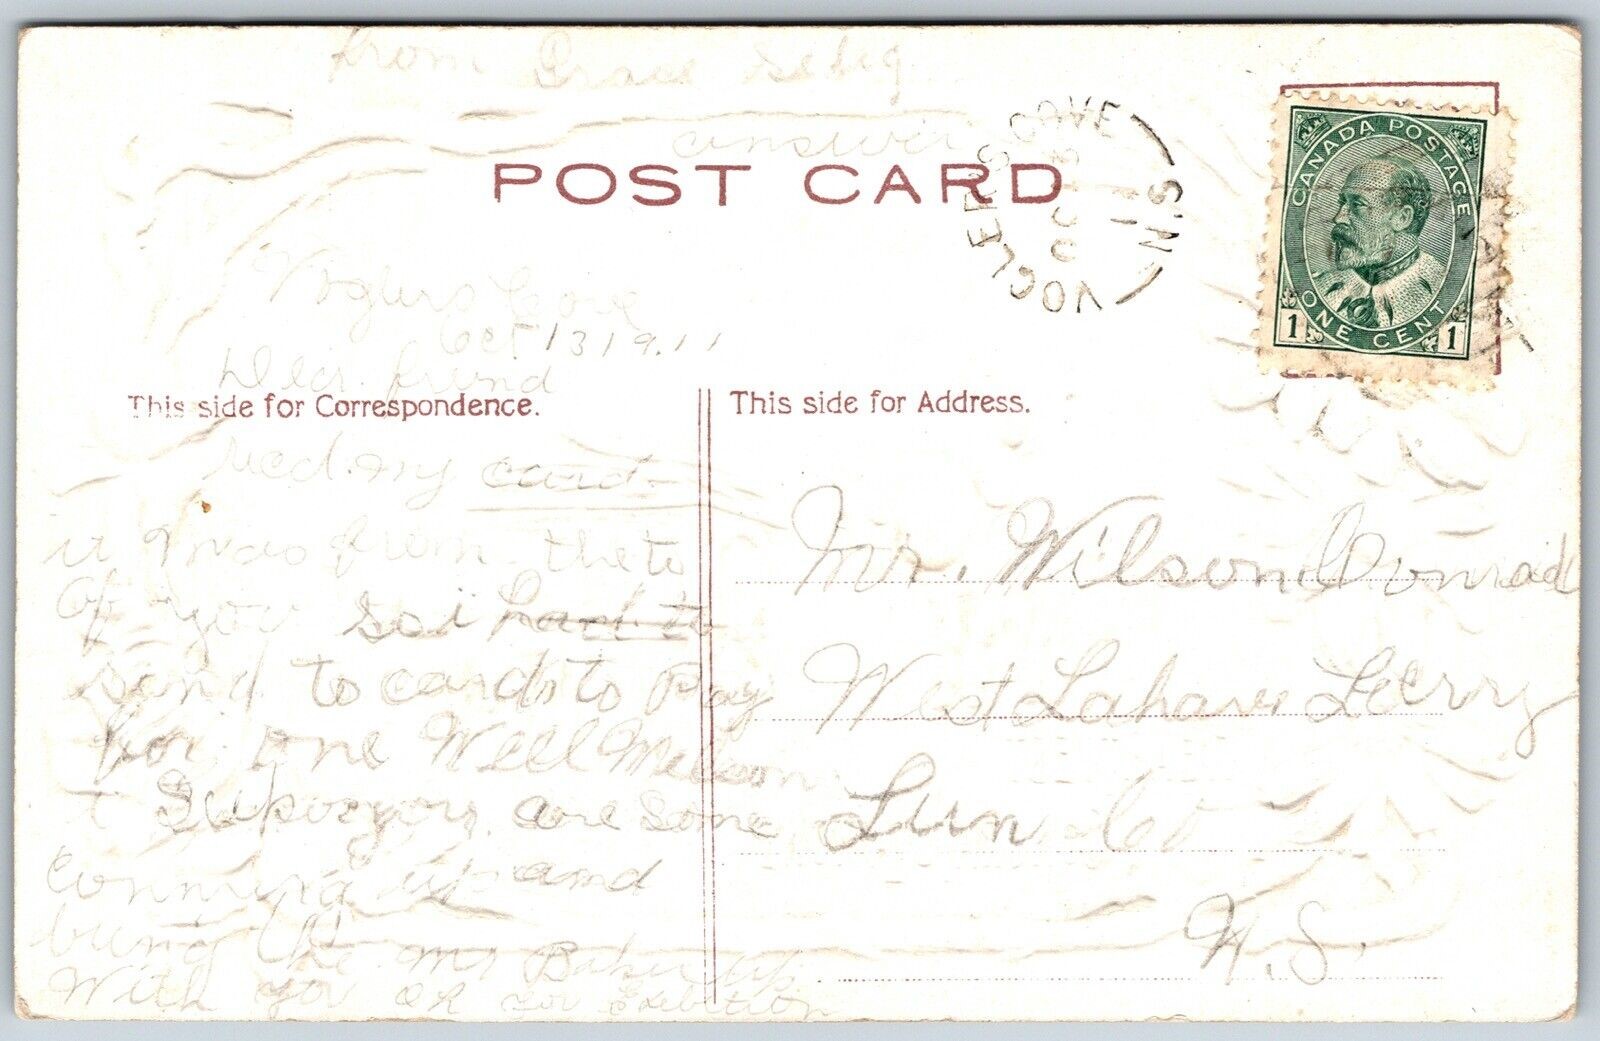 from Grace Selig
answer
POST CARD
VOGLERS COVE
N.S.
OC 13
11
CANADA POSTAGE
ONE CENT
1 1
Voglers Cove
Oct 13 19.11
Dear friend
This side for Correspondence.
This side for Address.
Recd. my card
it was from the to
Of you so i had to
send to cards to pay
for one Well Melson
i Supose you are some
Comming up and
bring the Mr Baker up
With you OR for Exebition
Mr. Wilson Conrad
West Lahave Ferry
Lun Co
N.S.